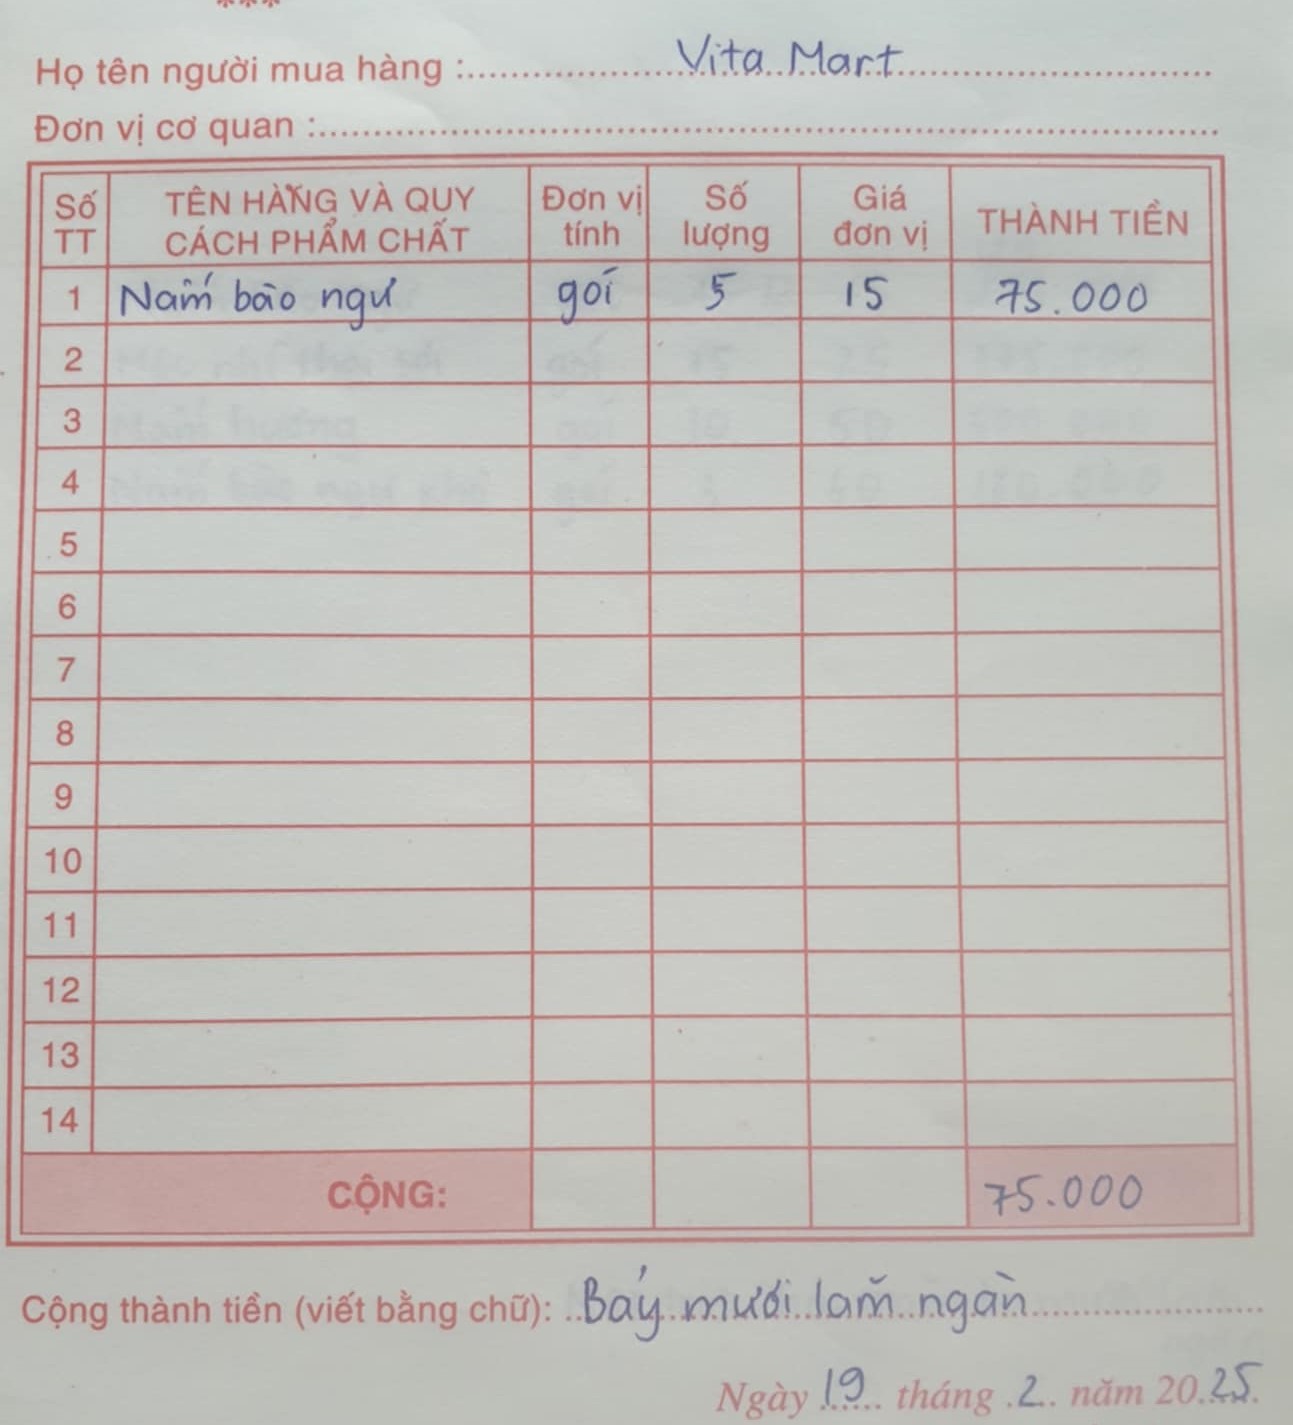 ***
Họ tên người mua hàng : Vita Mart
Đơn vị cơ quan :
Số TT TÊN HÀNG VÀ QUY CÁCH PHẨM CHẤT Đơn vị tính Số lượng Giá đơn vị THÀNH TIỀN
1 Nấm bào ngư gói 5 15 75.000
2
3
4
5
6
7
8
9
10
11
12
13
14
CỘNG: 75.000
Cộng thành tiền (viết bằng chữ): Bảy mươi lăm ngàn
Ngày 19 tháng 2 năm 2025